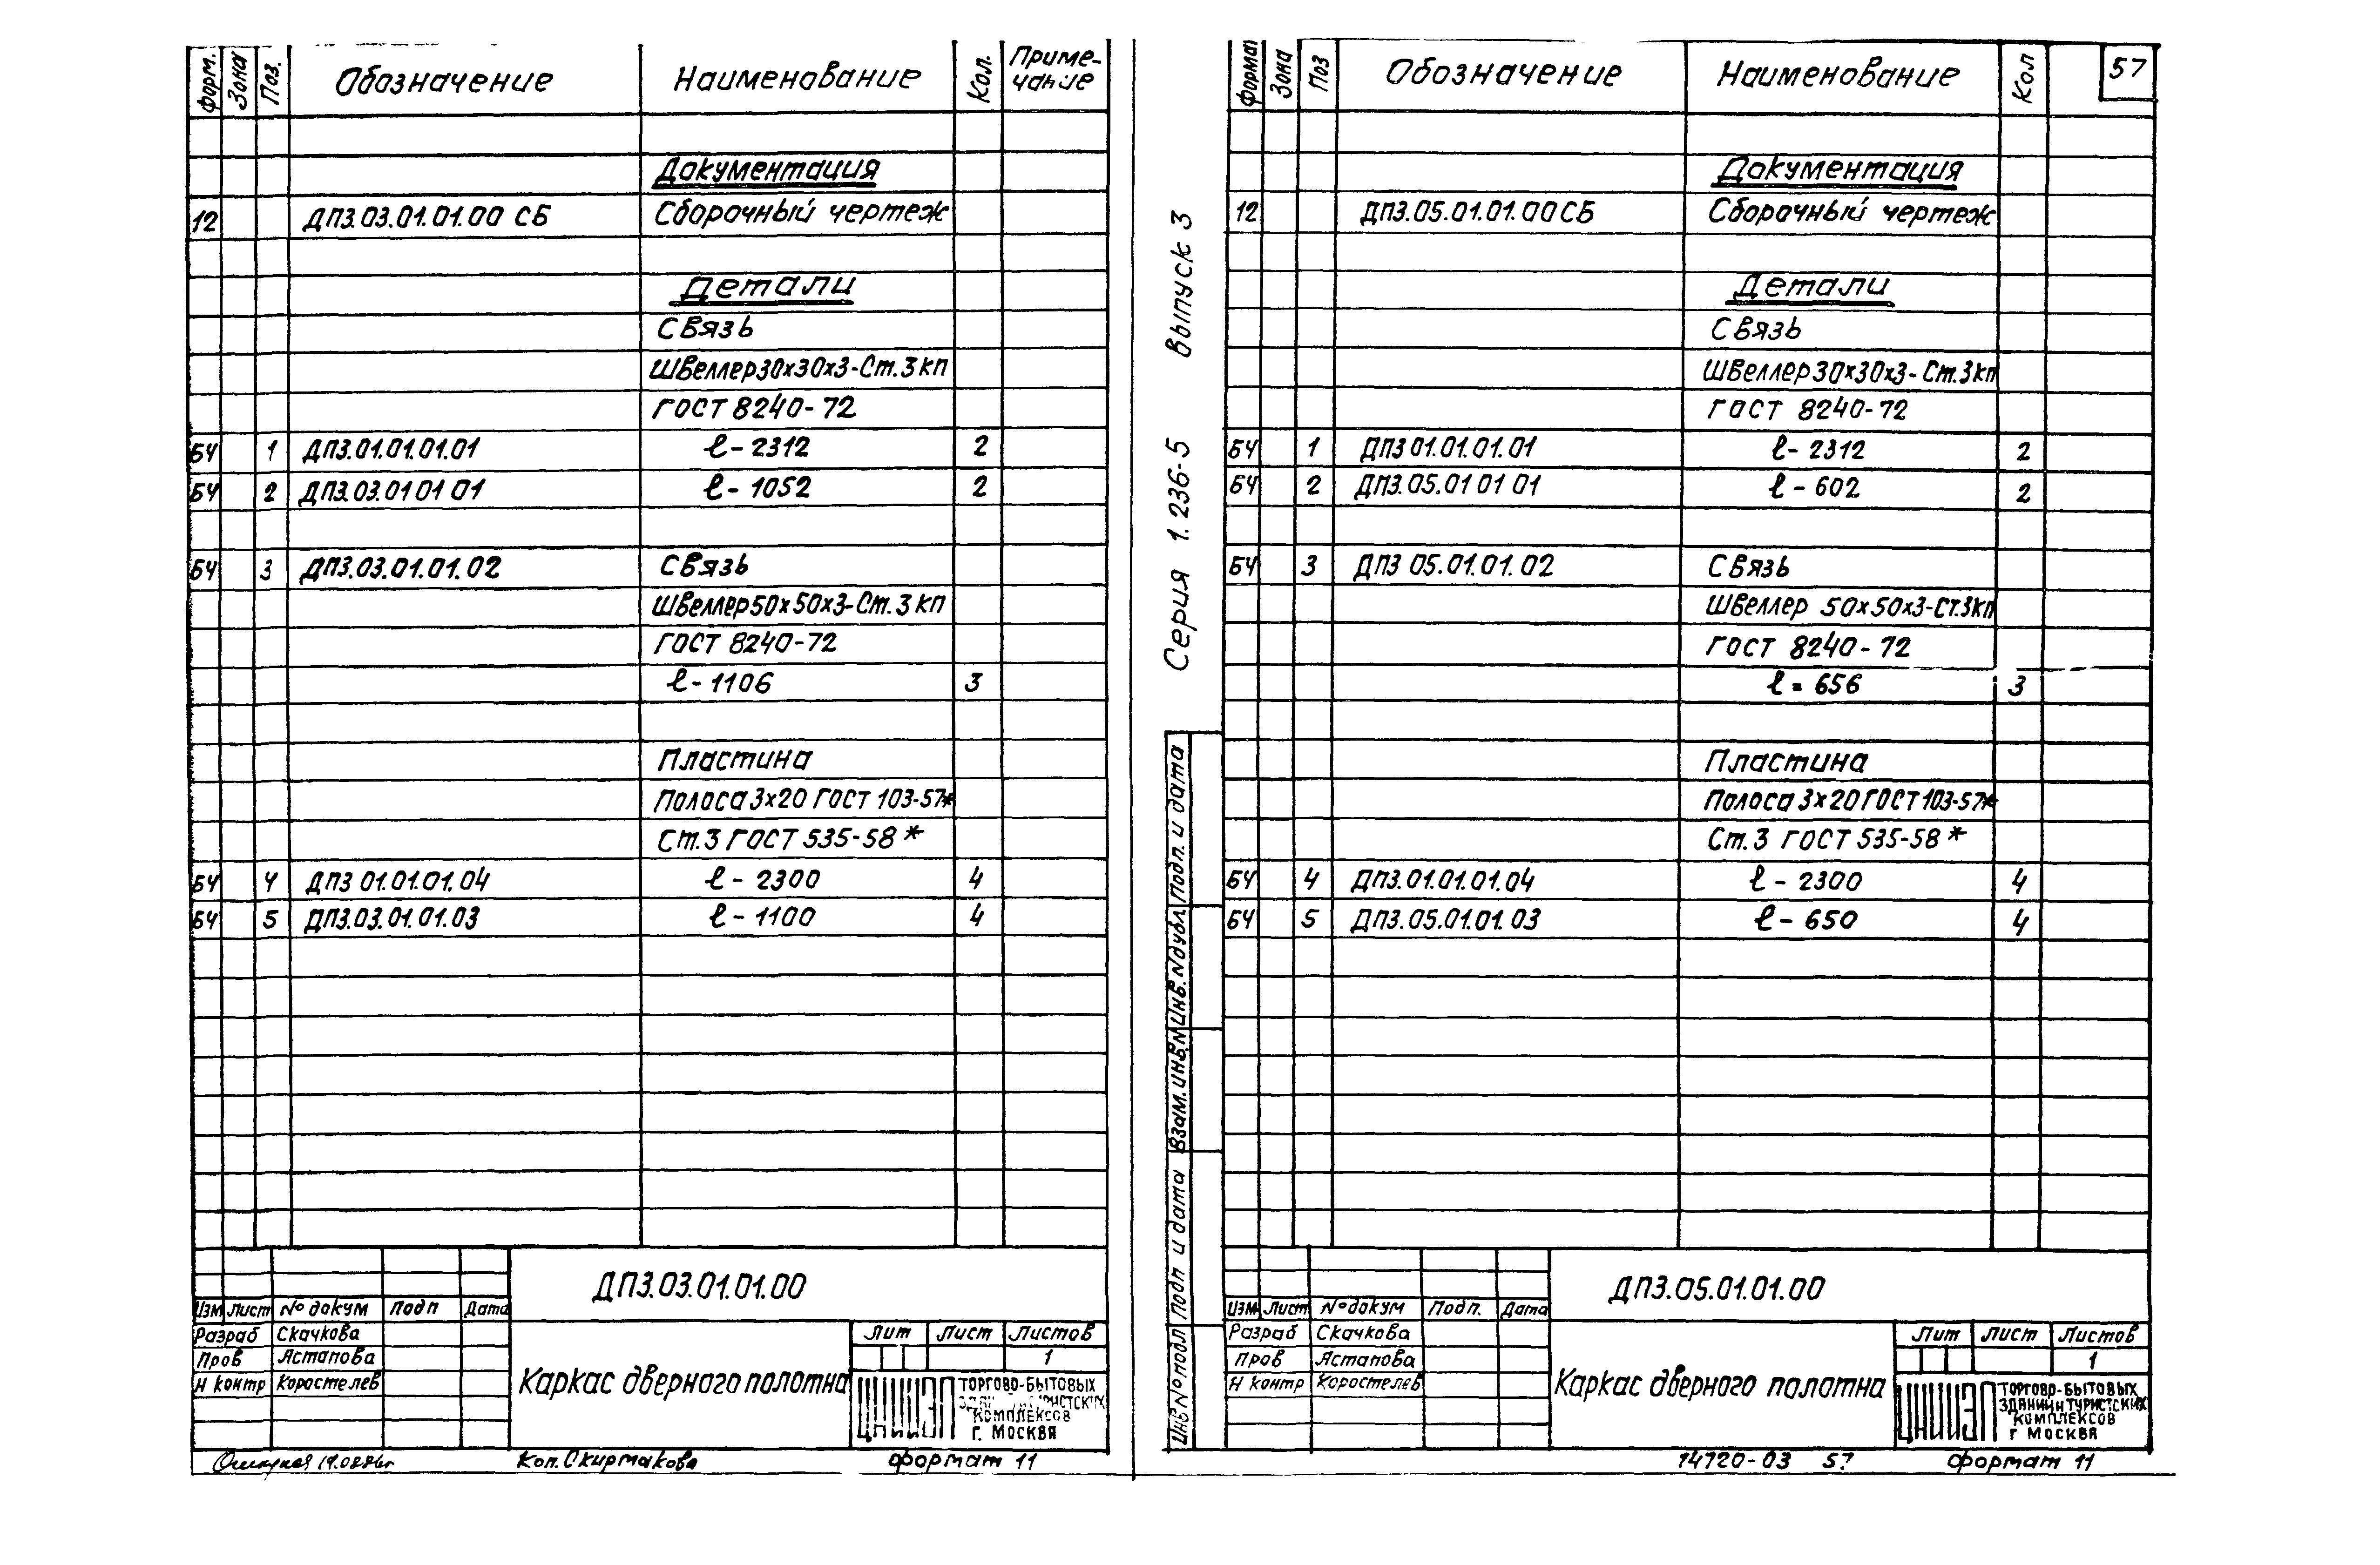 Форм. Зона Поз. Обозначение Наименование Кол. Приме-
чание
Документация
12 ДПЗ.03.01.01.00 СБ Сборочный чертеж
Детали
Связь
Швеллер 30х30х3-Ст.3кп
ГОСТ 8240-72
БЧ 1 ДПЗ.01.01.01.01 ℓ-2312 2
БЧ 2 ДПЗ.03.01 01 01 ℓ-1052 2
БЧ 3 ДПЗ.03.01.01.02 Связь
Швеллер 50х50х3-Ст.3кп
ГОСТ 8240-72
ℓ-1106 3
Пластина
Полоса 3х20 ГОСТ 103-57*
Ст.3 ГОСТ 535-58*
БЧ 4 ДПЗ 01.01.01.04 ℓ-2300 4
БЧ 5 ДПЗ.03.01.01.03 ℓ-1100 4
ДПЗ.03.01.01.00
Изм Лист № докум Подп Дата
Разраб Скачкова
Пров Астапова
Н контр Коростелев
Каркас дверного полотна
Лит Лист Листов
1
ЦНИИЭП
ТОРГОВО-БЫТОВЫХ
КОМПЛЕКСОВ
Г. МОСКВА
Коп. Скирмакова формат 11
Серия 1.236-5 Выпуск 3
Формат Зона Поз Обозначение Наименование Кол 57
Документация
12 ДПЗ.05.01.01.00СБ Сборочный чертеж
Детали
Связь
Швеллер 30х30х3-Ст.3кп
ГОСТ 8240-72
БЧ 1 ДПЗ 01.01.01.01 ℓ-2312 2
БЧ 2 ДПЗ.05.01 01 01 ℓ-602 2
БЧ 3 ДПЗ 05.01.01.02 Связь
Швеллер 50х50х3-Ст.3кп
ГОСТ 8240-72
ℓ=656 3
Пластина
Полоса 3х20 ГОСТ 103-57*
Ст.3 ГОСТ 535-58*
БЧ 4 ДПЗ.01.01.01.04 ℓ-2300 4
БЧ 5 ДПЗ.05.01.01.03 ℓ-650 4
Инв № подл Подп и дата Взам. инв.№ Инв.№ дубл. Подп. и дата
ДПЗ.05.01.01.00
Изм Лист № докум Подп. Дата
Разраб Скачкова
Пров Астапова
Н контр Коростелев
Каркас дверного полотна
Лит Лист Листов
1
ЦНИИЭП
ТОРГОВО-БЫТОВЫХ
ЗДАНИЙ И ТУРИСТСКИХ
КОМПЛЕКСОВ
Г МОСКВА
14720-03 57 формат 11